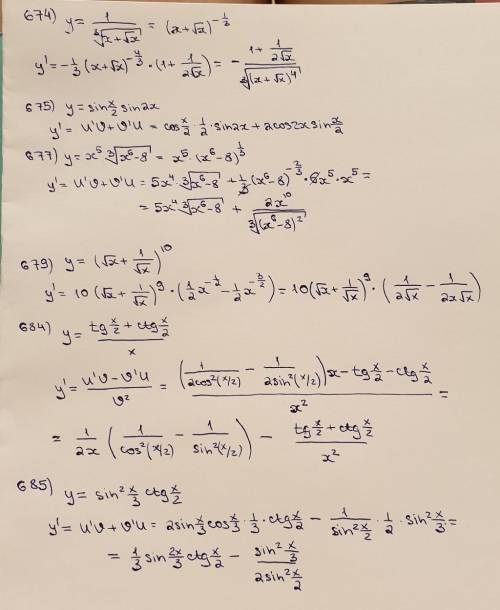 674) y = 1/∛(x+√x) = (x+√x)^(-1/3)
y' = -1/3 (x+√x)^(-4/3) · (1 + 1/(2√x)) = - (1 + 1/(2√x))/∛((x+√x)^4)
675) y = sin x/2 sin2x
y' = u'v + v'u = cos x/2 · 1/2 · sin2x + 2cos2x sin x/2
677) y = x^5 · ∛(x^6-8) = x^5 · (x^6-8)^(1/3)
y' = u'v + v'u = 5x^4 · ∛(x^6-8) + 1/3 (x^6-8)^(-2/3) · 6x^5 · x^5 =
= 5x^4 ∛(x^6-8) + 2x^10/∛((x^6-8)^2)
679) y = (√x + 1/√x)^10
y' = 10 (√x + 1/√x)^9 · (1/2 x^(-1/2) - 1/2 x^(-3/2)) = 10(√x + 1/√x)^9 · (1/(2√x) - 1/(2x√x))
684) y = (tg x/2 + ctg x/2)/x
y' = (u'v - v'u)/v² = ((1/(2cos²(x/2)) - 1/(2sin²(x/2)))x - tg x/2 - ctg x/2)/x² =
= 1/(2x) (1/cos²(x/2) - 1/sin²(x/2)) - (tg x/2 + ctg x/2)/x²
685) y = sin² x/3 ctg x/2
y' = u'v + v'u = 2sin x/3 cos x/3 · 1/3 · ctg x/2 - 1/(sin² x/2) · 1/2 · sin² x/3 =
= 1/3 sin 2x/3 ctg x/2 - (sin² x/3)/(2sin² x/2)